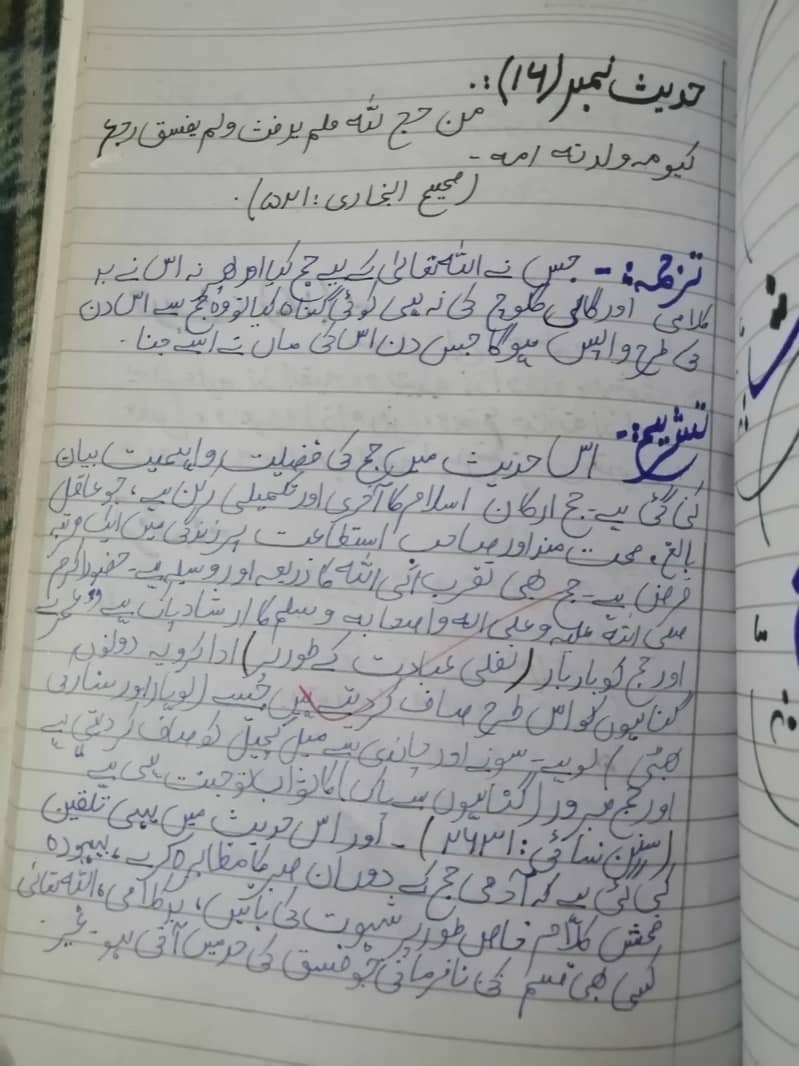 حدیث نمبر (۱۶) :.
من حج للہ فلم یرفث ولم یفسق رجع
کیوم ولدتہ امہ -
(صحیح البخاری : ۱۵۲۱).
ترجمہ :- جس نے اللہ تعالیٰ کے لیے حج کیا اور نہ اس نے بد
کلامی اور گالی گلوچ کی نہ ہی کوئی گناہ کیا تو وہ حج سے اس دن
کی طرح واپس ہو گا جس دن اس کی ماں نے اسے جنا .
تشریح :-
اس حدیث میں حج کی فضیلت و اہمیت بیان
کی گئی ہے - حج ارکان اسلام کا آخری اور تکمیلی رکن ہے ، جو عاقل
بالغ ، صحت مند اور صاحب استطاعت پر زندگی میں ایک مرتبہ
فرض ہے - حج بھی تقرب الی اللہ کا ذریعہ اور وسیلہ ہے - حضور اکرم
صلی اللہ علیہ وعلی الہ واصحابہ وسلم کا ارشاد پاک ہے " عمرے
اور حج کو بار بار (نفلی عبادت کے طور پر) ادا کرو یہ دونوں
گناہوں کو اس طرح صاف کر دیتے ہیں جیسے (لوہار اور سنار کی
بھٹی) لوہے - سونے اور چاندی سے میل کچیل کو صاف کر دیتی ہے
اور حج مبرور (گناہوں سے پاک) کا ثواب تو جنت ہی ہے "
(سنن نسائی : ۲۶۳۱) - اور اس حدیث میں یہی تلقین
کی گئی ہے کہ آدمی حج کے دوران صبر کا مظاہرہ کرے ، بیہودہ
فحش کلام خاص طور پر شہوت کی باتیں ، بد کلامی ، اللہ تعالیٰ
کسی بھی قسم کی نافرمانی جو فسق کی حد میں آتی ہو - غیر